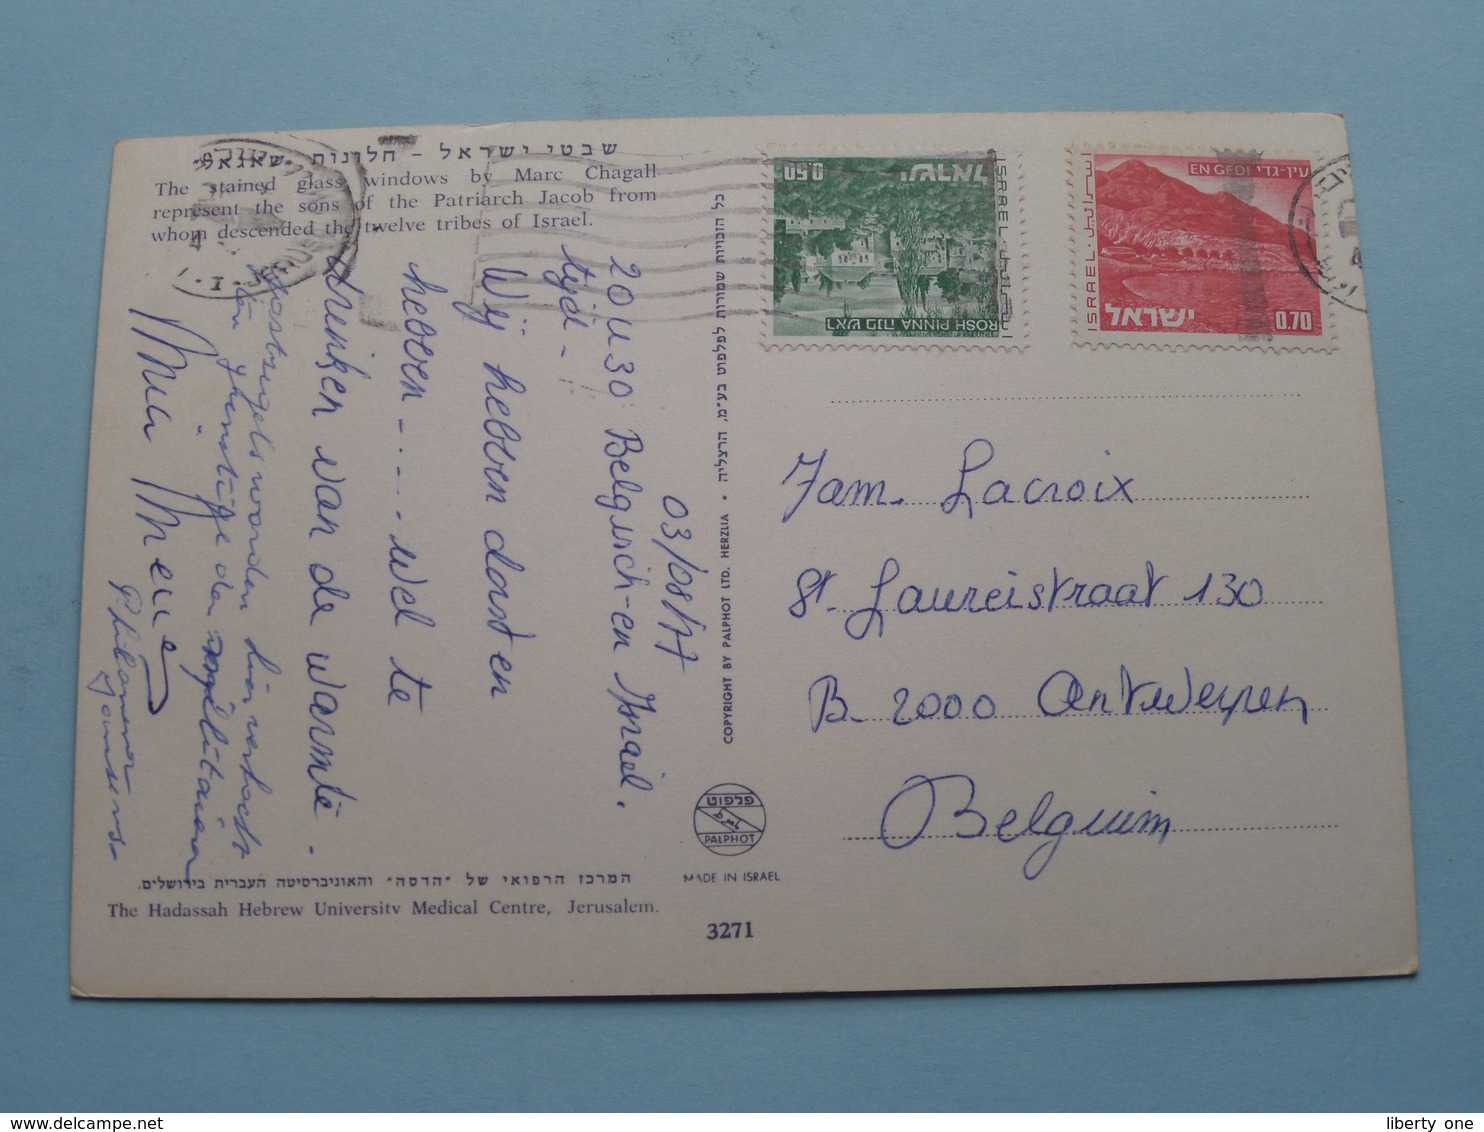 שבטי ישראל - חלונות "שאגאל"
The stained glass windows by Marc Chagall
represent the sons of the Patriarch Jacob from
whom descended the twelve tribes of Israel.
03/08/77
20 u 30 Belgisch-en Israel.
tijd -
Wij hebben dorst en
hebben ---- wel te
drinken van de warmte.
hier verwacht
Mia Meué
Philomena
המרכז הרפואי של "הדסה" והאוניברסיטה העברית בירושלים.
The Hadassah Hebrew University Medical Centre, Jerusalem.
COPYRIGHT BY PALPHOT LTD. HERZLIA • כל הזכויות שמורות לפלפוט בע"מ, הרצליה
פלפוט
PALPHOT
MADE IN ISRAEL
3271
0.50
ישראל
ISRAEL
ROSH PINNA ראש פנה
EN GEDI עין-גדי
ISRAEL
ישראל
0.70
Fam. Lacroix
St. Laureistraat 130
B. 2000 Antwerpen
Belguim
liberty one